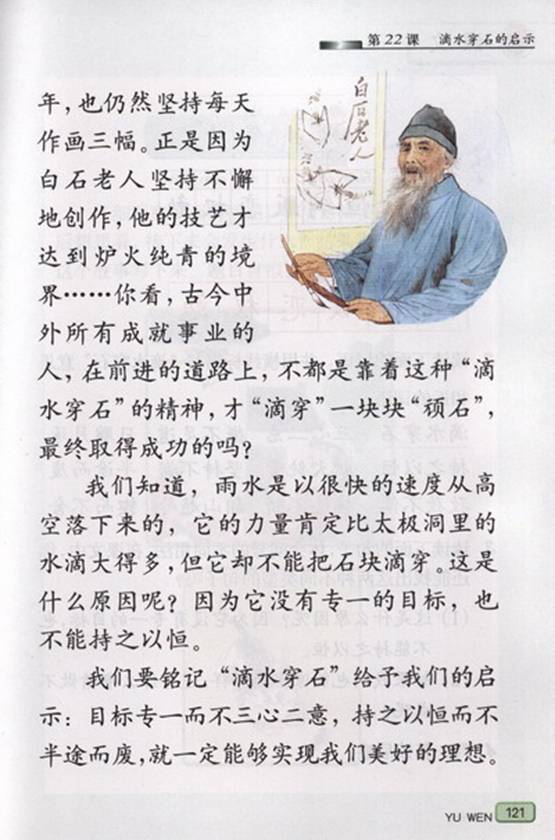 第22课 滴水穿石的启示
年，也仍然坚持每天
作画三幅。正是因为
白石老人坚持不懈
地创作，他的技艺才
达到炉火纯青的境
界……你看，古今中
外所有成就事业的
人，在前进的道路上，不都是靠着这种“滴
水穿石”的精神，才“滴穿”一块块“顽石”，
最终取得成功的吗？
我们知道，雨水是以很快的速度从高
空落下来的，它的力量肯定比太极洞里的
水滴大得多，但它却不能把石块滴穿。这是
什么原因呢？因为它没有专一的目标，也
不能持之以恒。
我们要铭记“滴水穿石”给予我们的启
示：目标专一而不三心二意，持之以恒而不
半途而废，就一定能够实现我们美好的理想。
白石老人
YU WEN 121